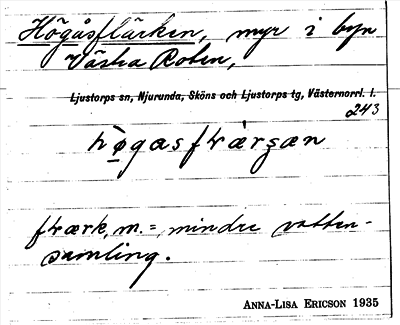 Högåsflärken, myr i byn
Västra Roten,
Ljustorps sn, Njurunda, Sköns och Ljustorps tg, Västernorrl. l.
243
m. = mindre vatten-
samling.
ANNA-LISA ERICSON 1935